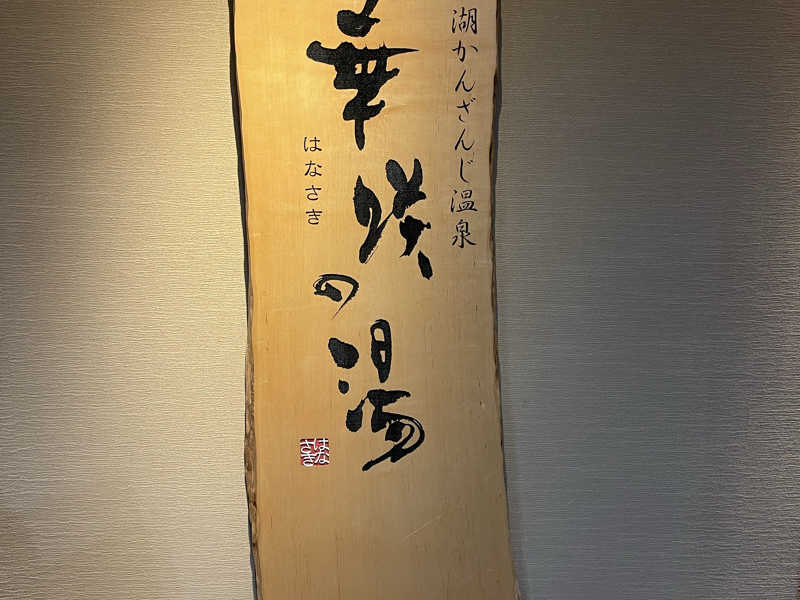 湖かんざんじ温泉
華咲の湯
はなさき
はなさき